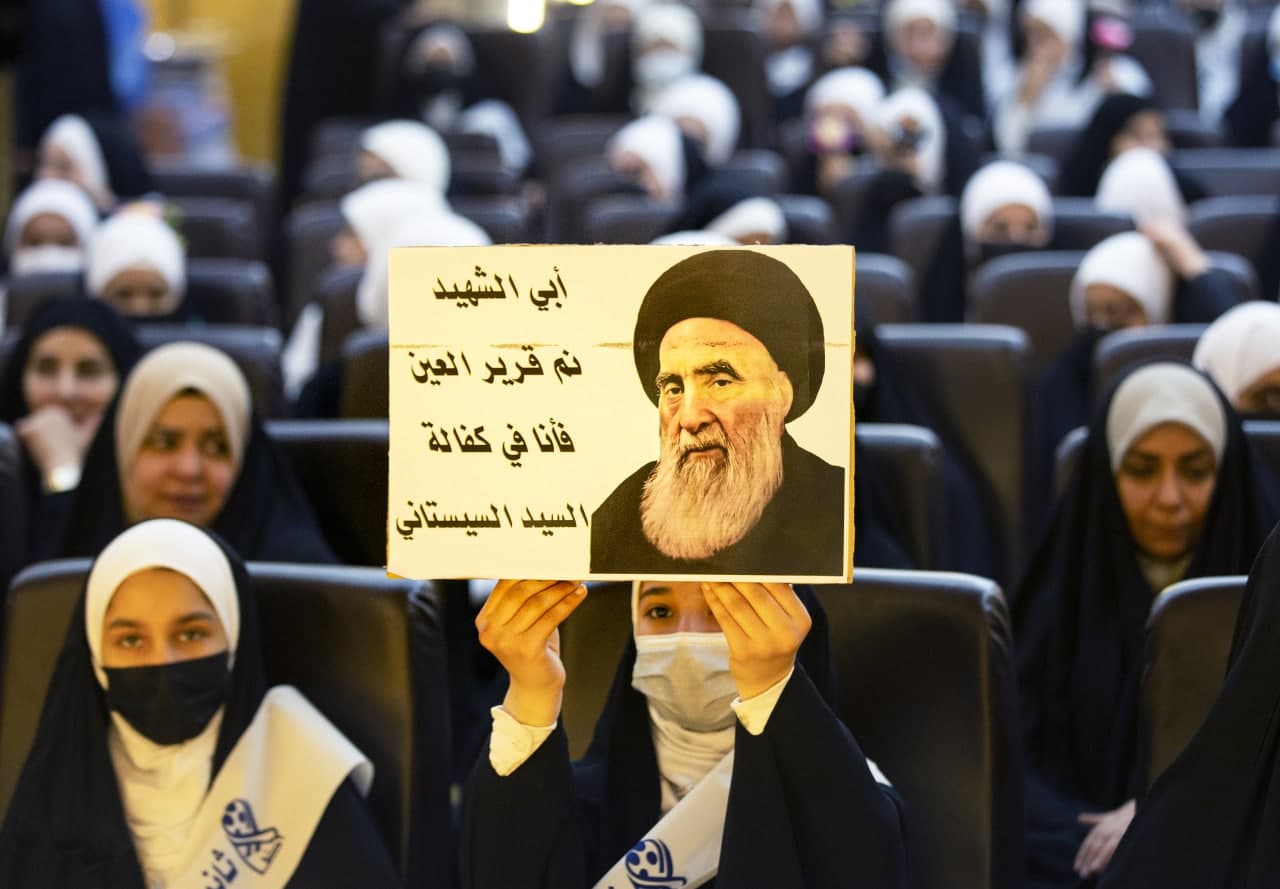 أبي الشهيد
نم قرير العين
فأنا في كفالة
السيد السيستاني